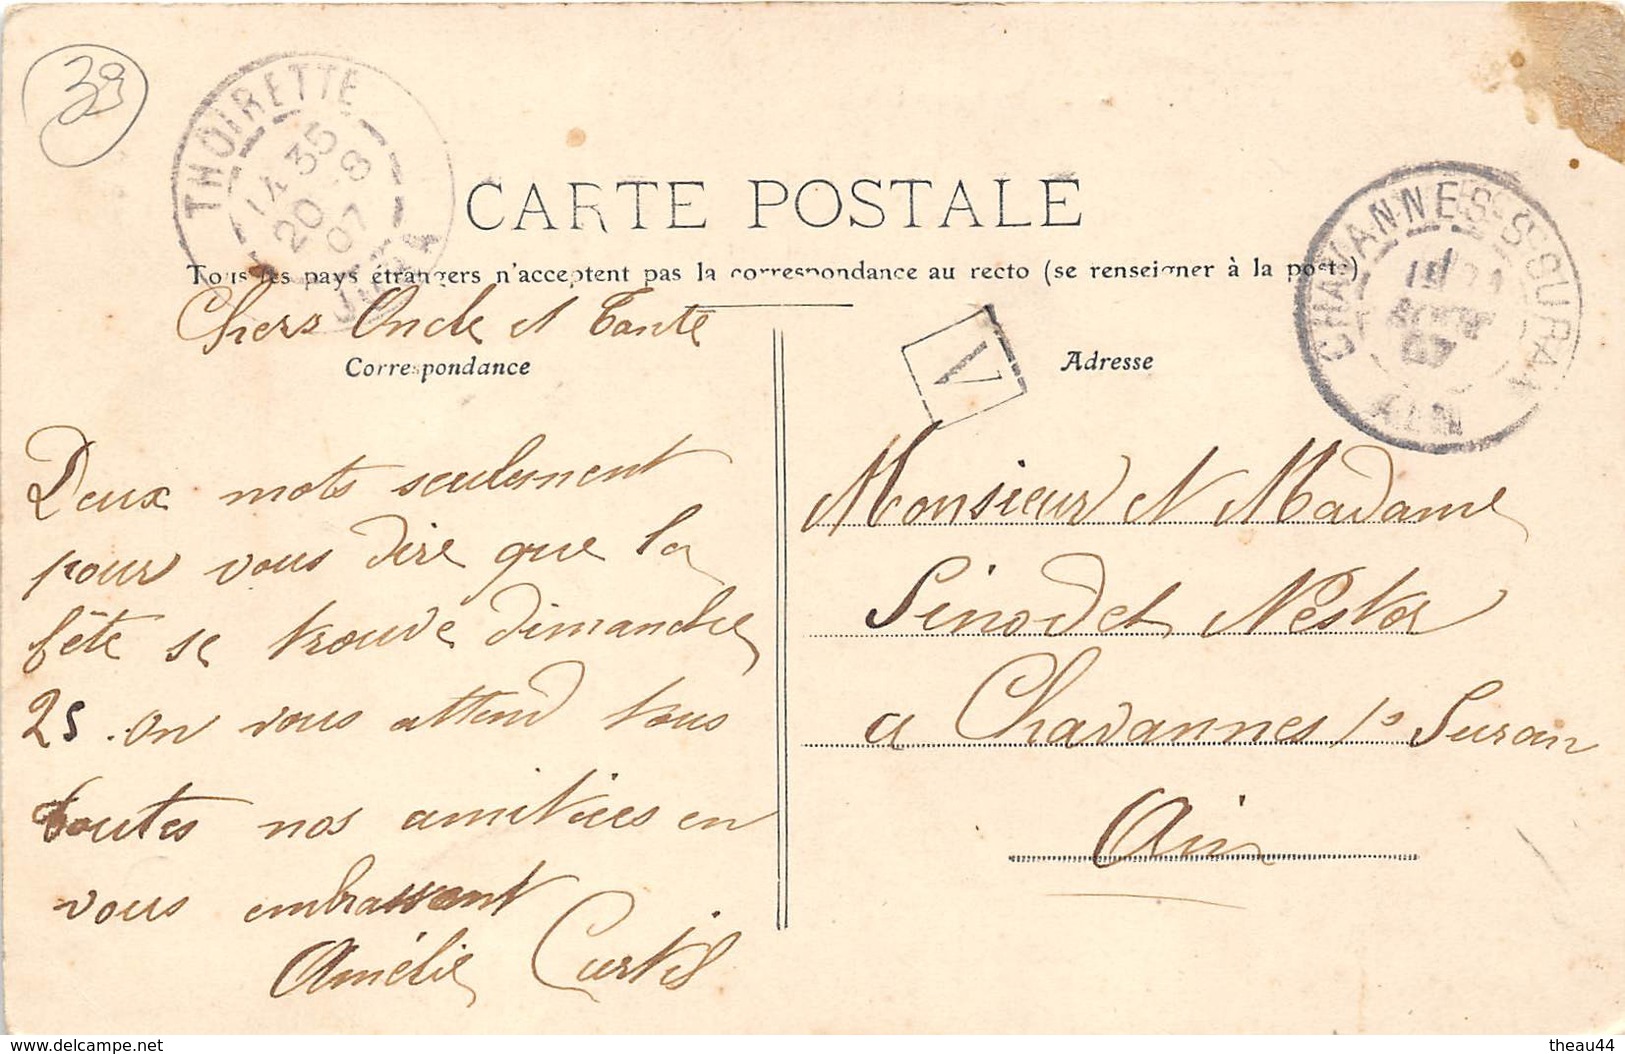 39
THOIRETTE
14 35
20 - 8
07
JURA
CARTE POSTALE
Tous les pays étrangers n'acceptent pas la correspondance au recto (se renseigner à la poste)
CHAVANNES-S-SURAN
AIN
V
Correspondance
Adresse
Chers Oncle et Tante
Deux mots seulement
pour vous dire que la
fête se trouve dimanche
25. On vous attend tous
toutes nos amitiées en
vous embrassent
Amélie Curtil
Monsieur et Madame
Sinodet Nestor
a Chavannes /s Suran
Ain
www.delcampe.net
theau44